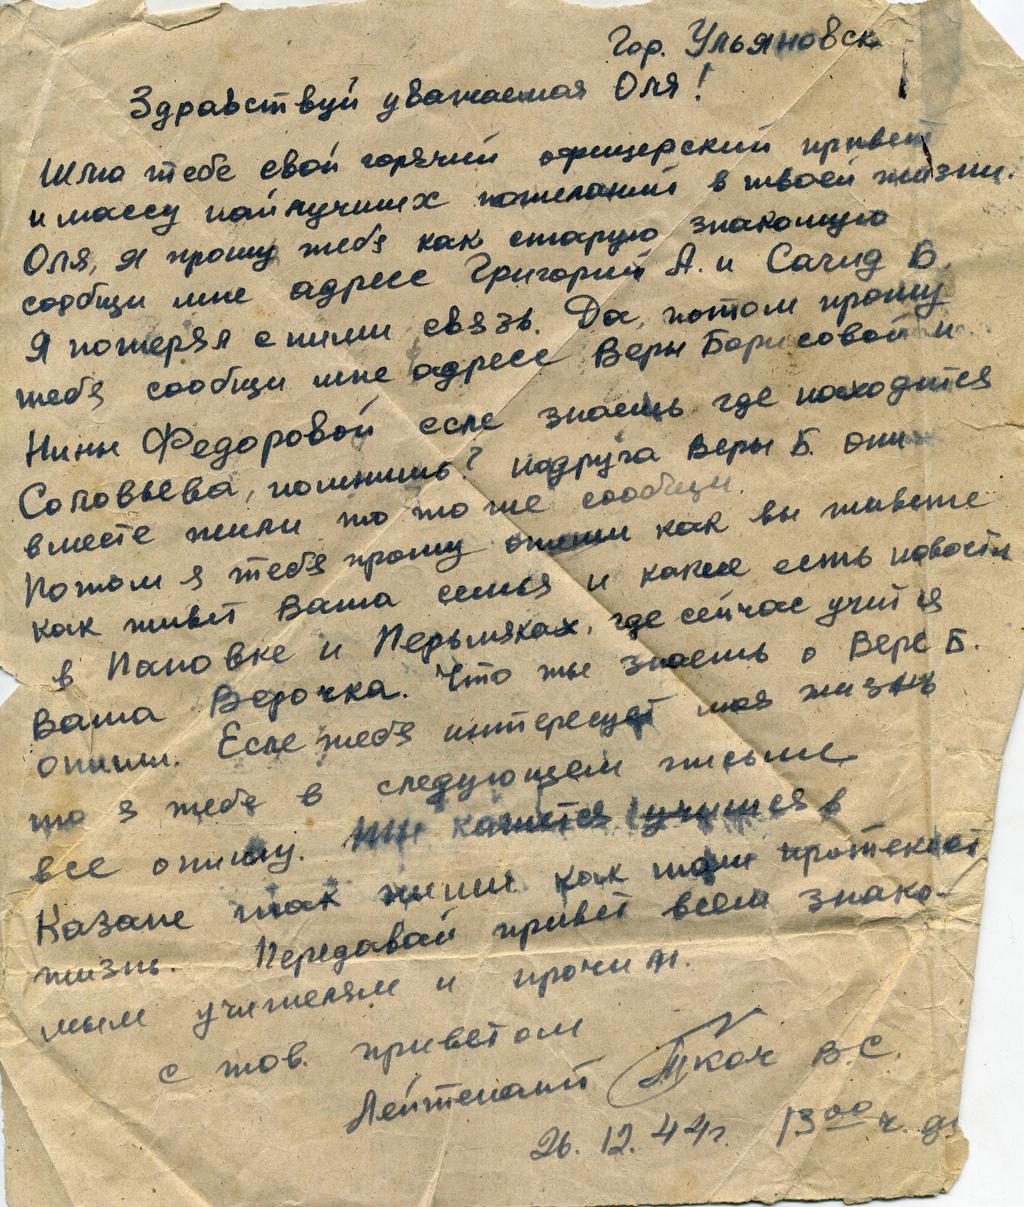 Гор. Ульяновск
Здравствуй уважаемая Оля!
Шлю тебе свой горячий офицерский привет
и массу найлучших пожеланий в твоей жизни.
Оля, я прошу тебя как старую знакомую
сообщи мне адресс Григорий А. и Сагид В.
Я потерял с ними связь. Да, потом прошу
тебя сообщи мне адресс Веры Борисовой и
Нины Федоровой есле знаешь где находится
Соловьева, помнишь? подруга Веры Б. они
вместе жили то тоже сообщи.
Потом я тебя прошу опиши как вы живете
как живет Ваша семья и какие есть новости
в Паповке и Пермяках, где сейчас учится
Ваша Верочка. Что ты знаешь о Вере Б.
опиши. Есле тебя интересует моя жизнь
то я тебе в следующем письме
все опишу. кажется учишся в
Казане так пиши как там протекает
жизнь. Передавай привет всем знако-
мым учителям и прочим.
с тов. приветом
Лейтенант Ткач В.С.
26.12.44г. 13 00 ч. дн